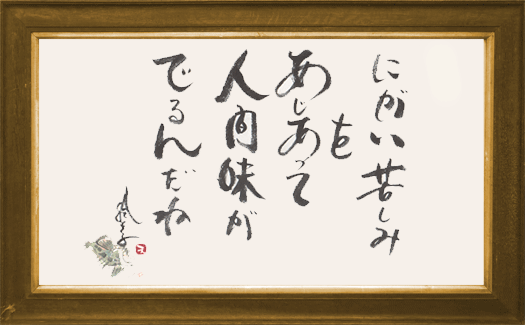 にがい苦しみ
を
あじあって
人間味が
でるんだね